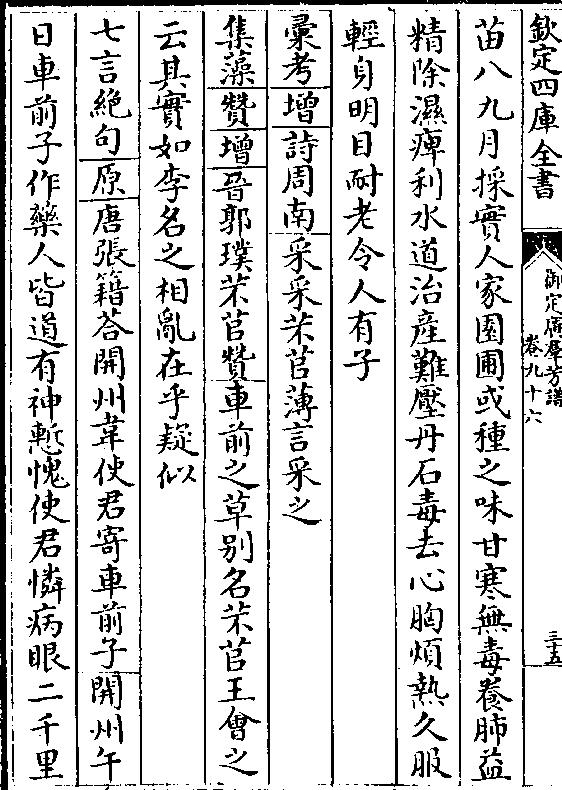 欽定四庫全書
御定廣羣芳譜
卷九十六
三十五
苗八九月採實人家園圃或種之味甘寒無毒養肺益
精除濕痺利水道治産難壓丹石毒去心胸煩熱久服
輕身明目耐老令人有子
彚考增詩周南采采芣苢薄言采之
集藻贊增晉郭璞芣苢贊車前之草别名芣苢王會之
云其實如李名之相亂在乎疑似
七言絶句原唐張籍答開州韋使君寄車前子開州午
日車前子作藥人皆道有神慙愧使君憐病眼二千里